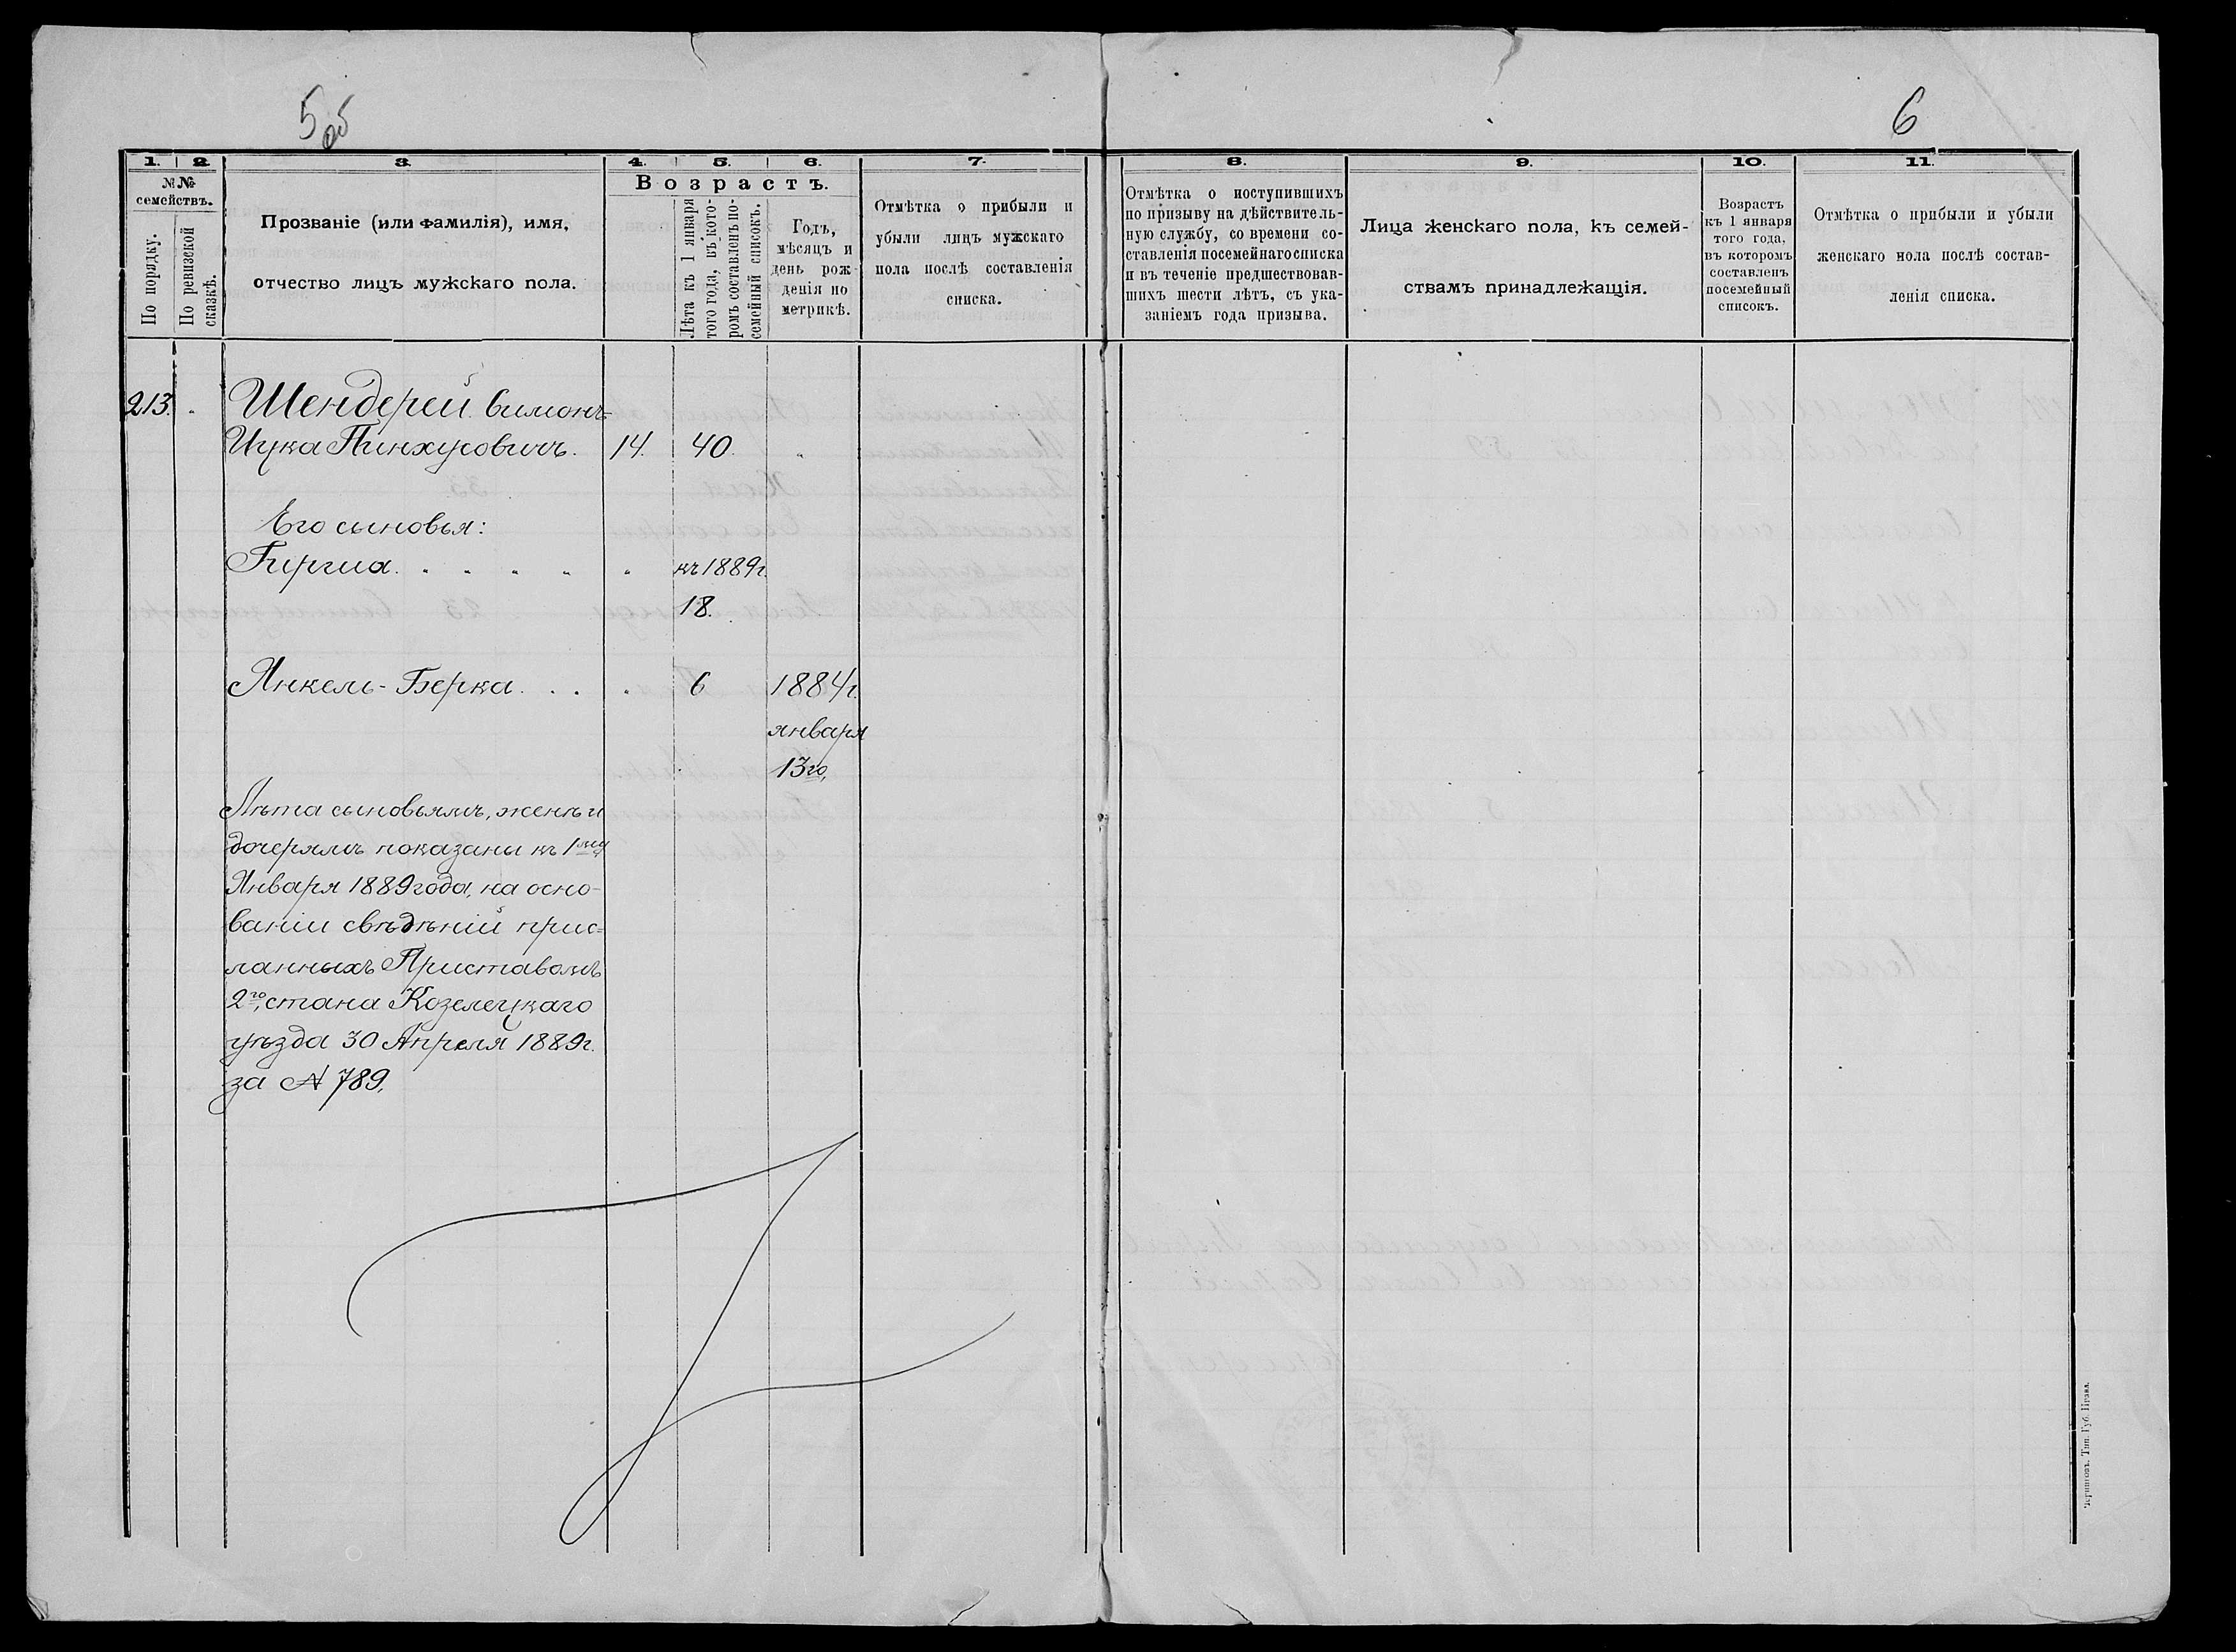 5об
6
1. 2. 3. 4. 5. 6. 7. 8. 9. 10. 11.
№№ семействъ.
По порядку.
По ревизской сказкѣ.
Прозваніе (или фамилія), имя,
отчество лицъ мужскаго пола.
Возрастъ.
Лѣта къ 1 января
того года, въ кото-
ромъ составленъ по-
семейный списокъ.
Годъ,
мѣсяцъ и
день рож
денія по
метрикѣ.
Отмѣтка о прибыли и
убыли лицъ мужскаго
пола послѣ составленія
списка.
Отмѣтка о поступившихъ
по призыву на дѣйствитель-
ную службу, со времени со-
ставленія посемейнаго списка
и въ теченіе предшествовав-
шихъ шести лѣтъ, съ ука-
заніемъ года призыва.
Лица женскаго пола, къ семей-
ствамъ принадлежащія.
Возрастъ
къ 1 января
того года,
въ которомъ
составленъ
посемейный
списокъ.
Отмѣтка о прибыли и убыли
женскаго пола послѣ состав-
ленія списка.
213. Шендерей Симонъ-
Ицка Пинхусовичъ. 14. 40.
Его сыновья:
Гиргиа. къ 1889г.
18.
Янкель-Берка. 6 1884г.
января
13го,
Лѣта сыновьямъ, женѣ и
дочерямъ показаны къ 1му
Января 1889 года, на осно-
ваніи свѣдѣній прис-
ланныхъ Приставомъ
2го, стана Козелецкаго
уѣзда 30 Апрѣля 1889г.
за № 789.
Черниговъ. Тип. Губ. Правл.